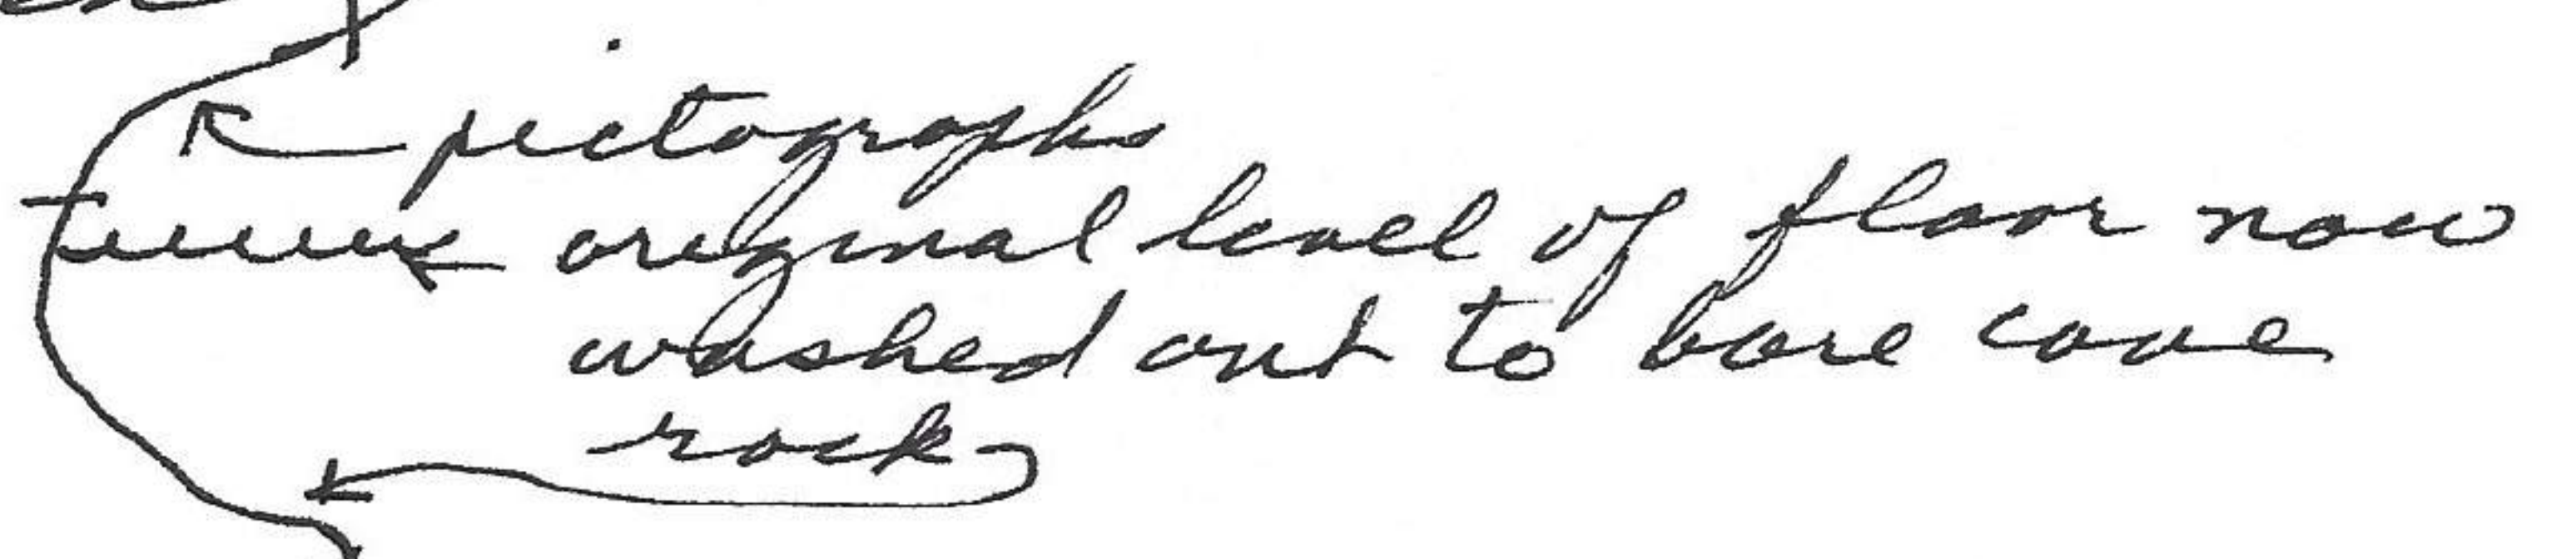 pictographs
original level of floor now
washed out to bare cave
rock